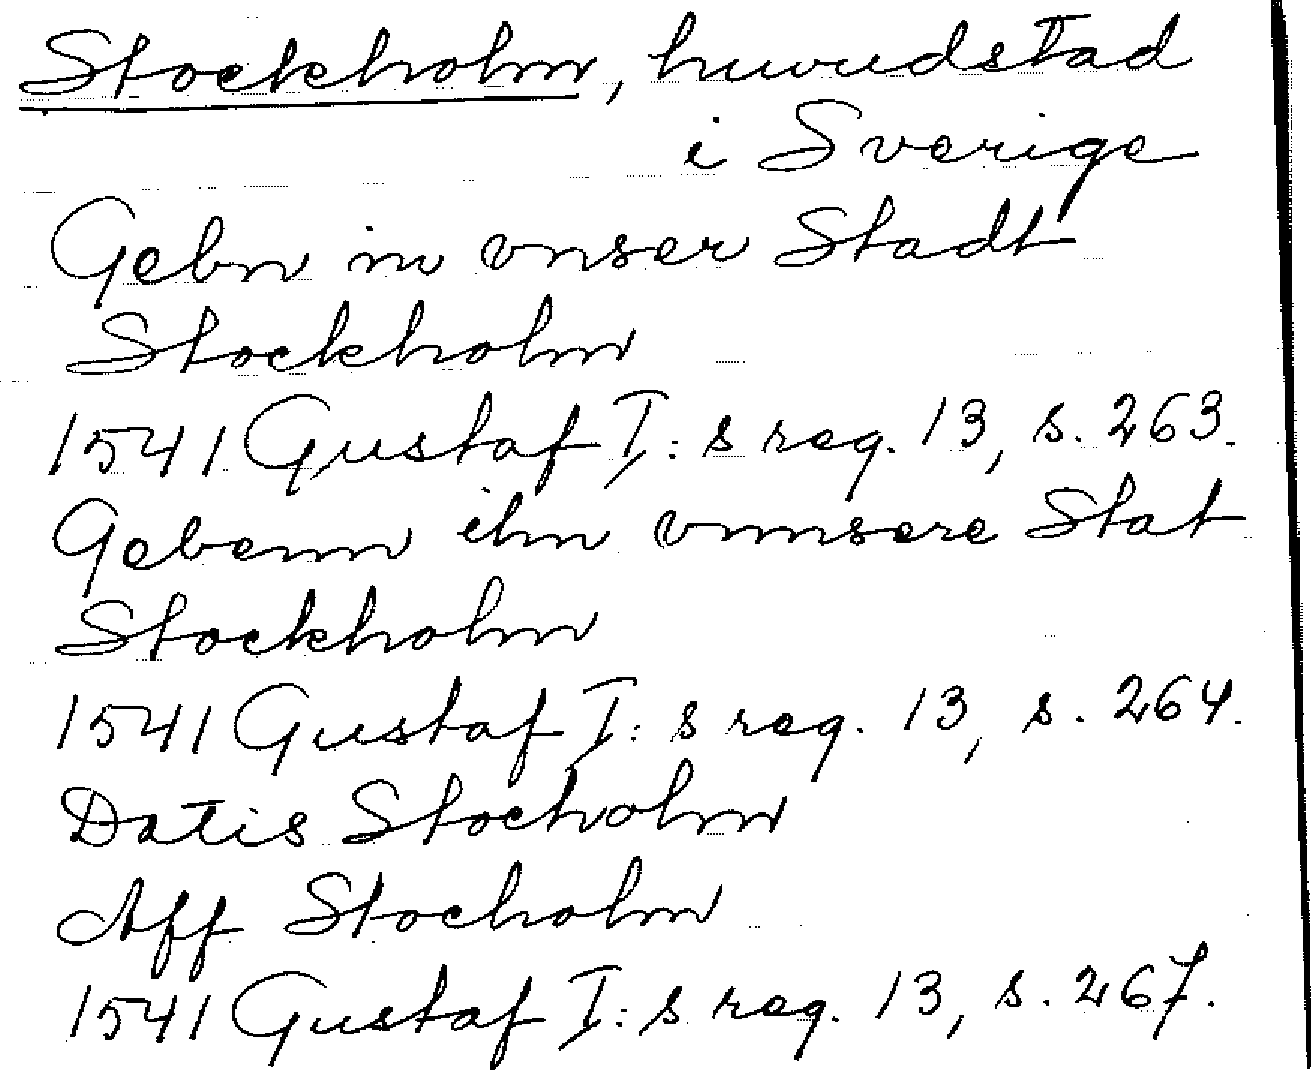 Stockholm, huvudstad
i Sverige
Gebn in vnser Stadt
Stockholm
1541 Gustaf I: s reg. 13, s. 263.
Gebenn ihn vnnsere Stat
Stockholm
1541 Gustaf I: s reg. 13, s. 264.
Datis Stocholm
Aff Stocholm
1541 Gustaf I: s reg. 13, s. 267.